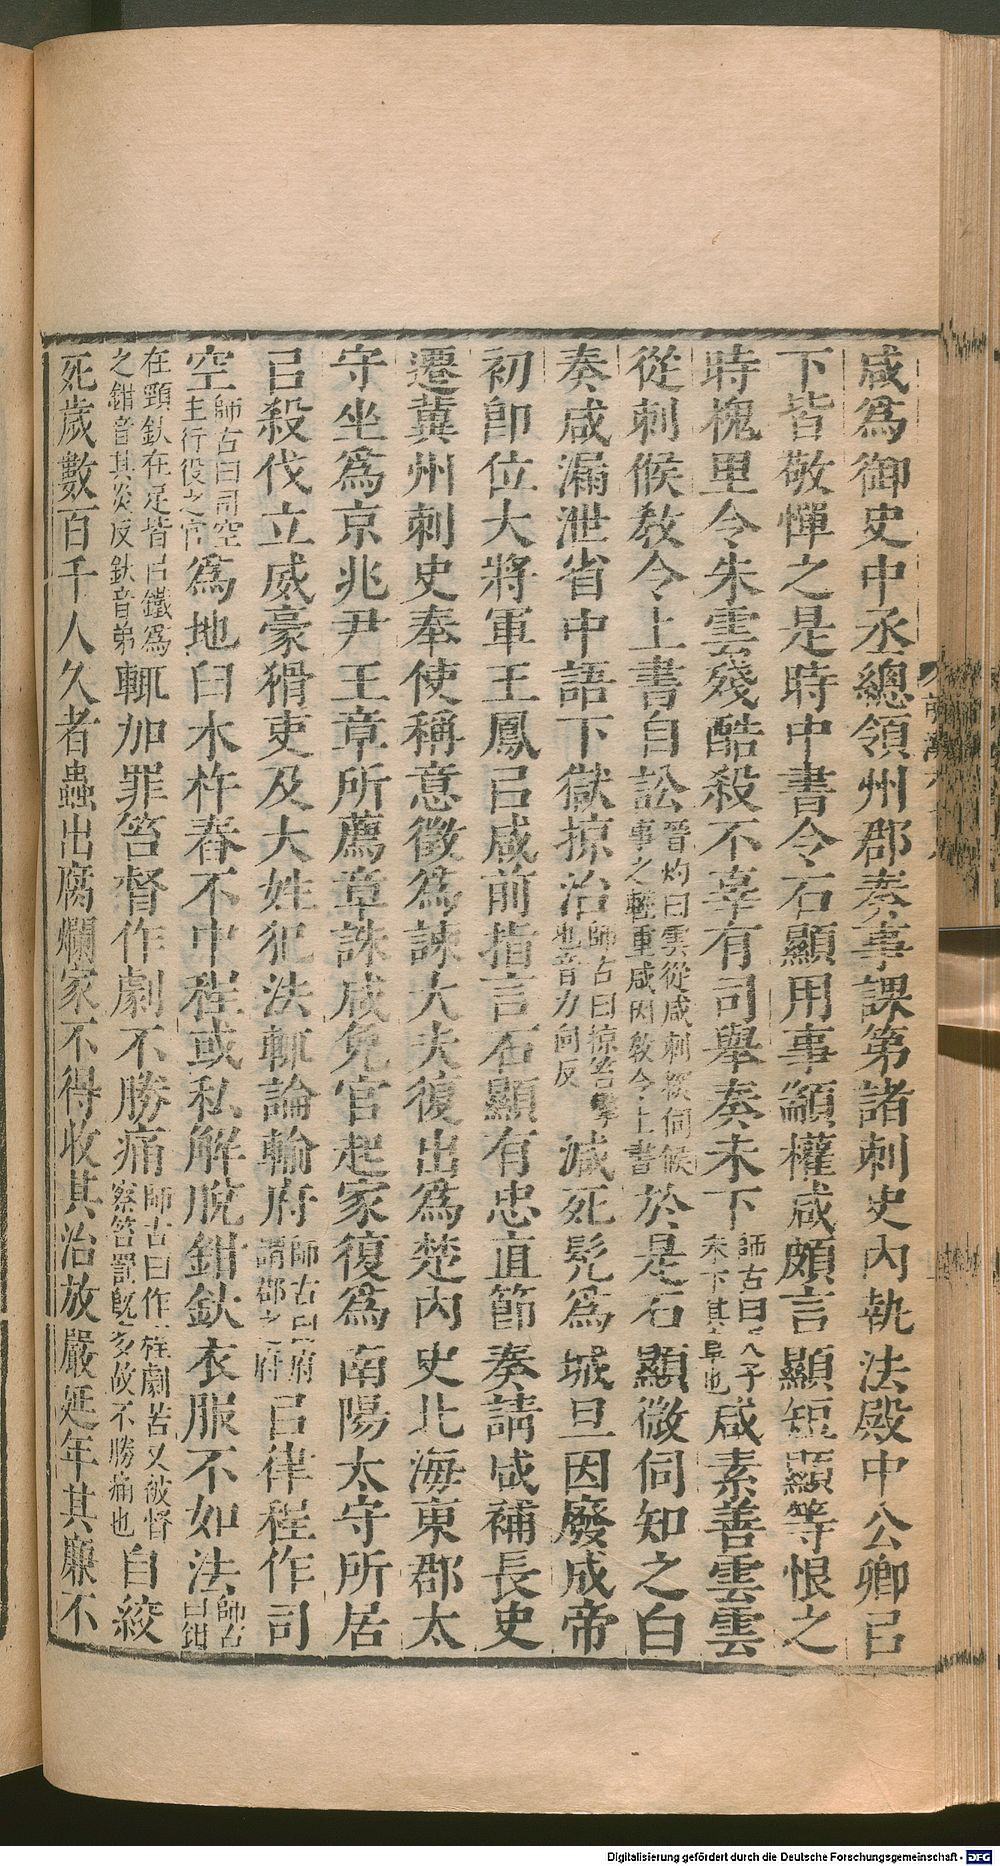 咸爲御史中丞總領州郡奏事課第諸刺史內執法殿中公卿㠯
下皆敬憚之是時中書令石顯用事顓權咸頗言顯短顯等恨之
時槐里令朱雲殘酷殺不辜有司舉奏未下師古曰天子未下其章也咸素善雲雲
從刺候敎令上書自訟晉灼曰雲從咸刺探伺候事之輕重咸因敎令上書於是石顯微伺知之白
奏咸漏泄省中語下獄掠治師古曰掠笞擊也音力向反減死髠爲城旦因廢成帝
初卽位大將軍王鳳㠯咸前指言石顯有忠直節奏請咸補長史
遷冀州刺史奉使稱意徵爲諫大夫復出爲楚內史北海東郡太
守坐爲京兆尹王章所薦章誅咸免官起家復爲南陽太守所居
㠯殺伐立威豪猾吏及大姓犯法輒論輸府師古曰府謂郡之府㠯律程作司
空師古曰司空主行役之官爲地臼木杵舂不中程或私解脫鉗釱衣服不如法師古曰鉗
在頸釱在足皆㠯鐵爲之鉗音其炎反釱音弟輒加罪笞督作劇不勝痛師古曰作程劇苦又被督察笞罰旣多故不勝痛也自絞
死歲數百千人久者蟲出腐爛家不得收其治放嚴延年其廉不
Digitalisierung gefördert durch die Deutsche Forschungsgemeinschaft - DFG